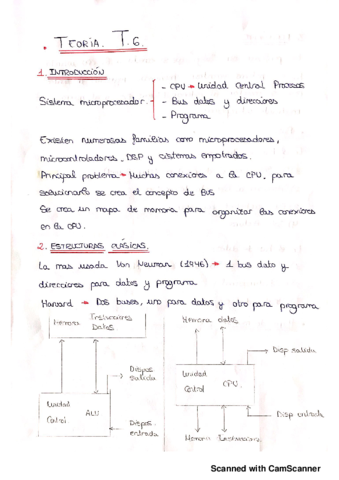 . TEORIA. T.6.
1. INTRODUCCIÓN
- CPU → Unidad Central Proceso
Sistema microprocesador. - Bus datos y direcciones
- Programa
Existen numerosas familias como microprocesadores,
microcontroladores, DSP y sistemas empotrados.
Principal problema → Muchas conexiones a la CPU, para
solucionarlo se crea el concepto de BUS
Se crea un mapa de memoria para organizar las conexiones
en la CPU.
2. ESTRUCTURAS CLÁSICAS.
La mas usada Von Neuman (1946) → 1 bus dato y
direcciones para datos y programa
Harvard → Dos buses, uno para datos y otro para programa
Memoria Instrucciones
Datos
Dispos
salida
Unidad
Control ALU
Dispos.
entrada
Memoria datos
Disp salida
Unidad
Control CPU
Disp entrada
Memoria Instrucciones
Scanned with CamScanner